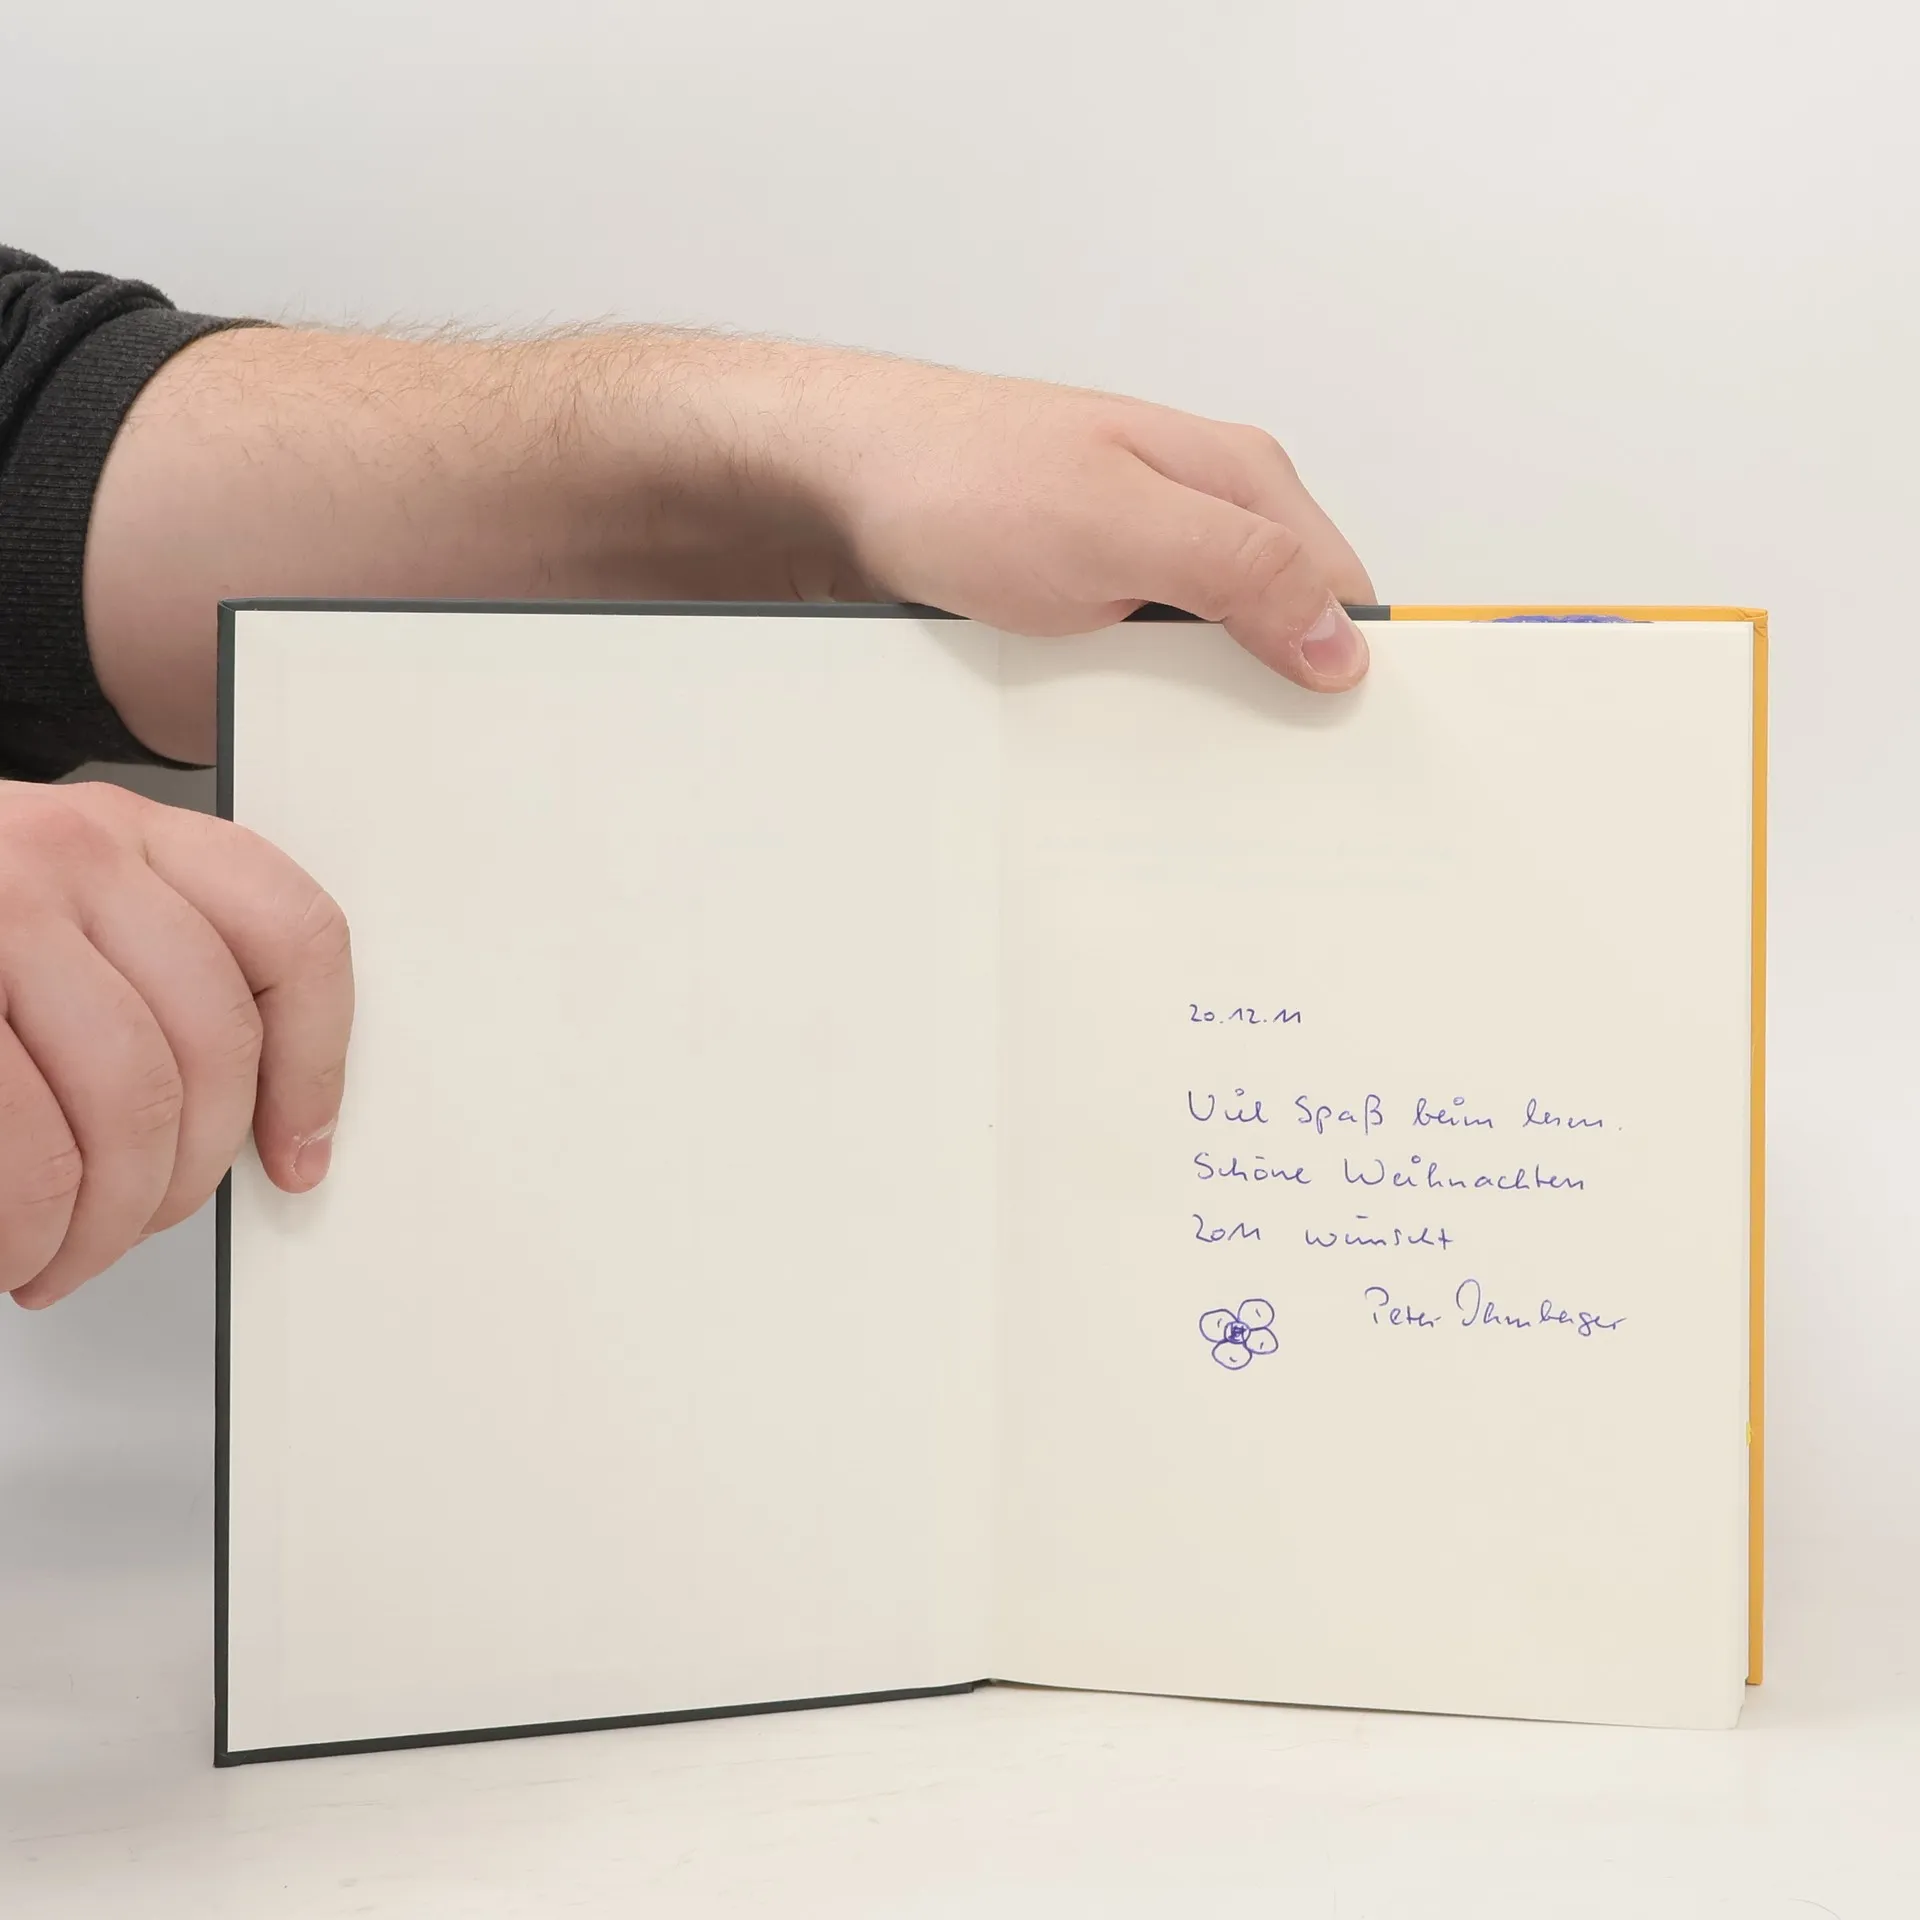 20.12.11
Viel Spaß beim lesen.
Schöne Weihnachten
2011 wünscht
Peter